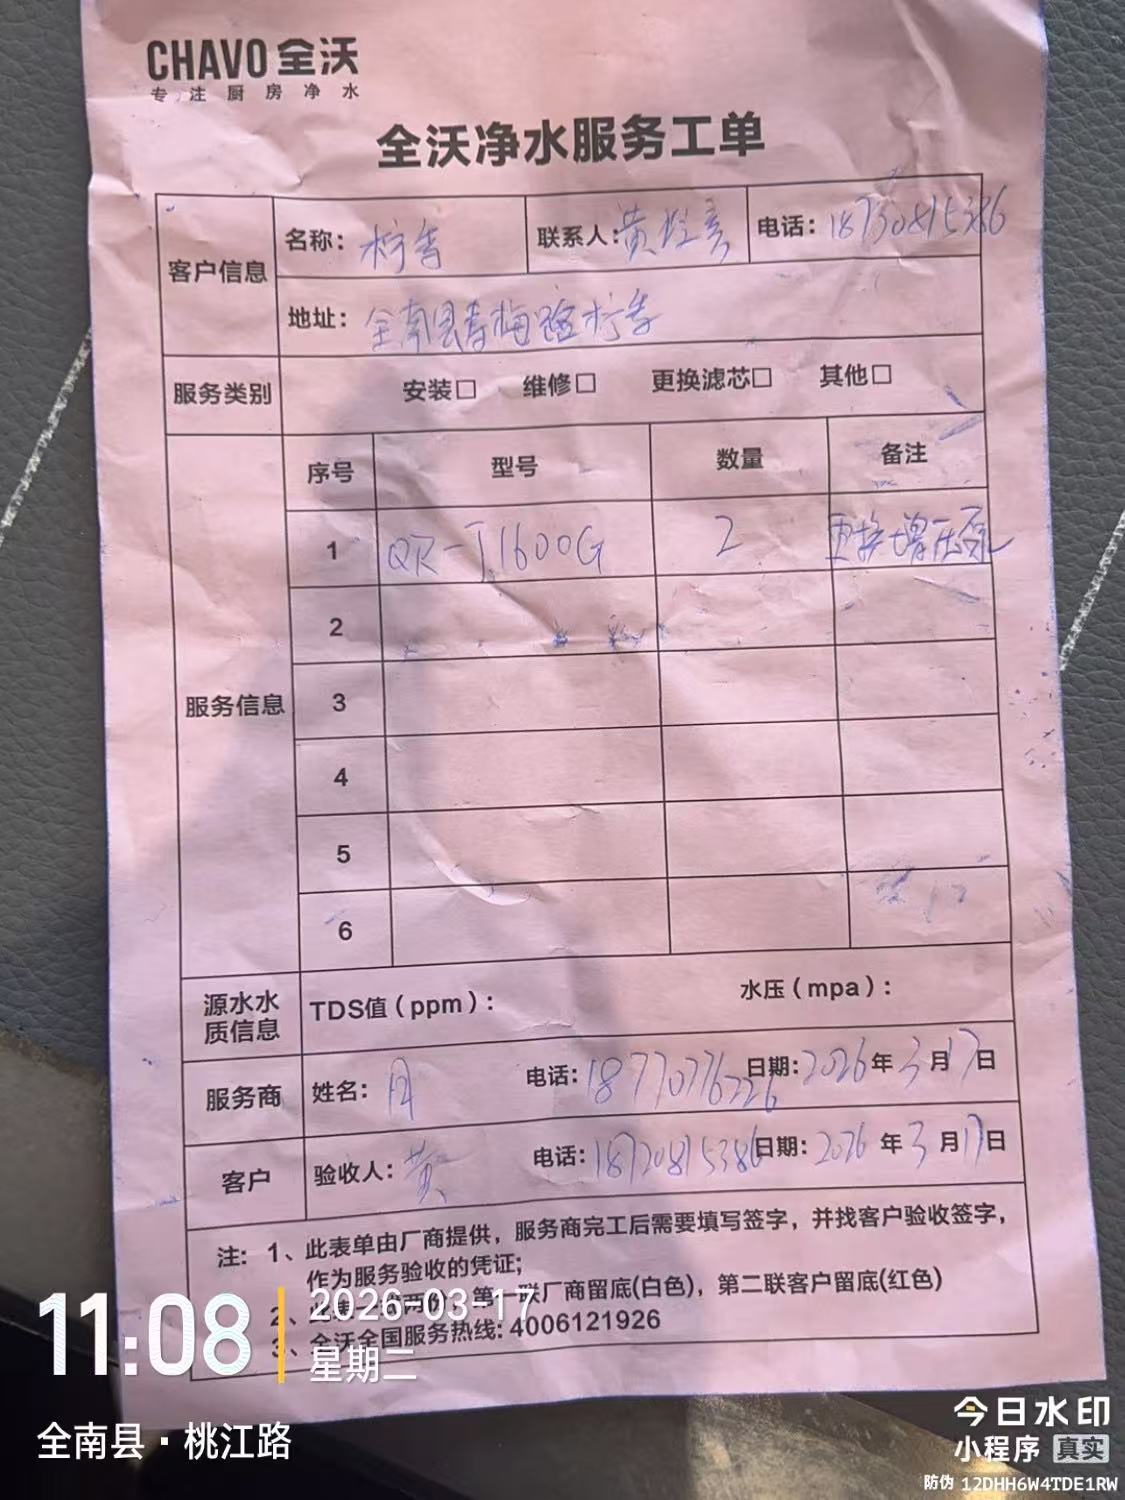 CHAVO 全沃
专注厨房净水
全沃净水服务工单
客户信息 名称：柠季 联系人：黄 电话：18730815386
地址：全南县青梅路柠季
服务类别 安装□ 维修□ 更换滤芯□ 其他□
服务信息 序号 型号 数量 备注
1 QR-J1600G 2 更换增压泵
2
3
4
5
6
源水水质信息 TDS值（ppm）： 水压（mpa）：
服务商 姓名： 电话：18770776226 日期：2026年3月17日
客户 验收人：黄 电话：18720815386 日期：2026年3月17日
注：1、此表单由厂商提供，服务商完工后需要填写签字，并找客户验收签字，
作为服务验收的凭证；
2、此表一式两份，第一联厂商留底(白色)，第二联客户留底(红色)
3、全沃全国服务热线：4006121926
11:08
2026-03-17
星期二
全南县·桃江路
今日水印
小程序 真实
防伪 12DHH6W4TDE1RW